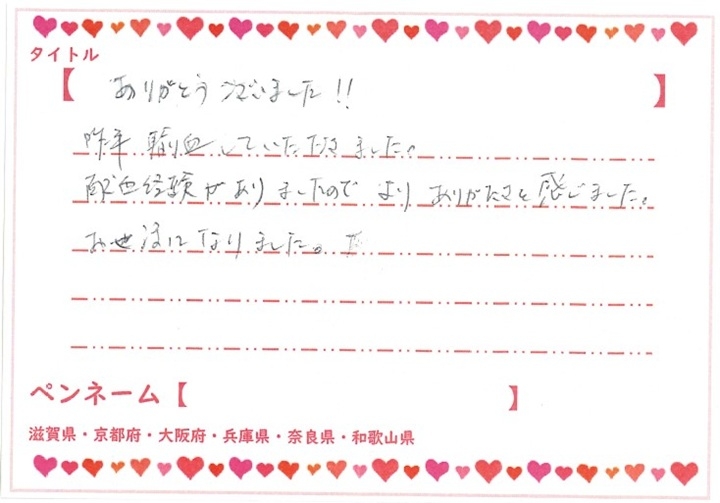 タイトル
【 ありがとうございました!! 】
昨年輸血していただきました。
献血経験がありましたので よりありがたさを感じました。
お世話になりました。
ペンネーム【 】
滋賀県・京都府・大阪府・兵庫県・奈良県・和歌山県